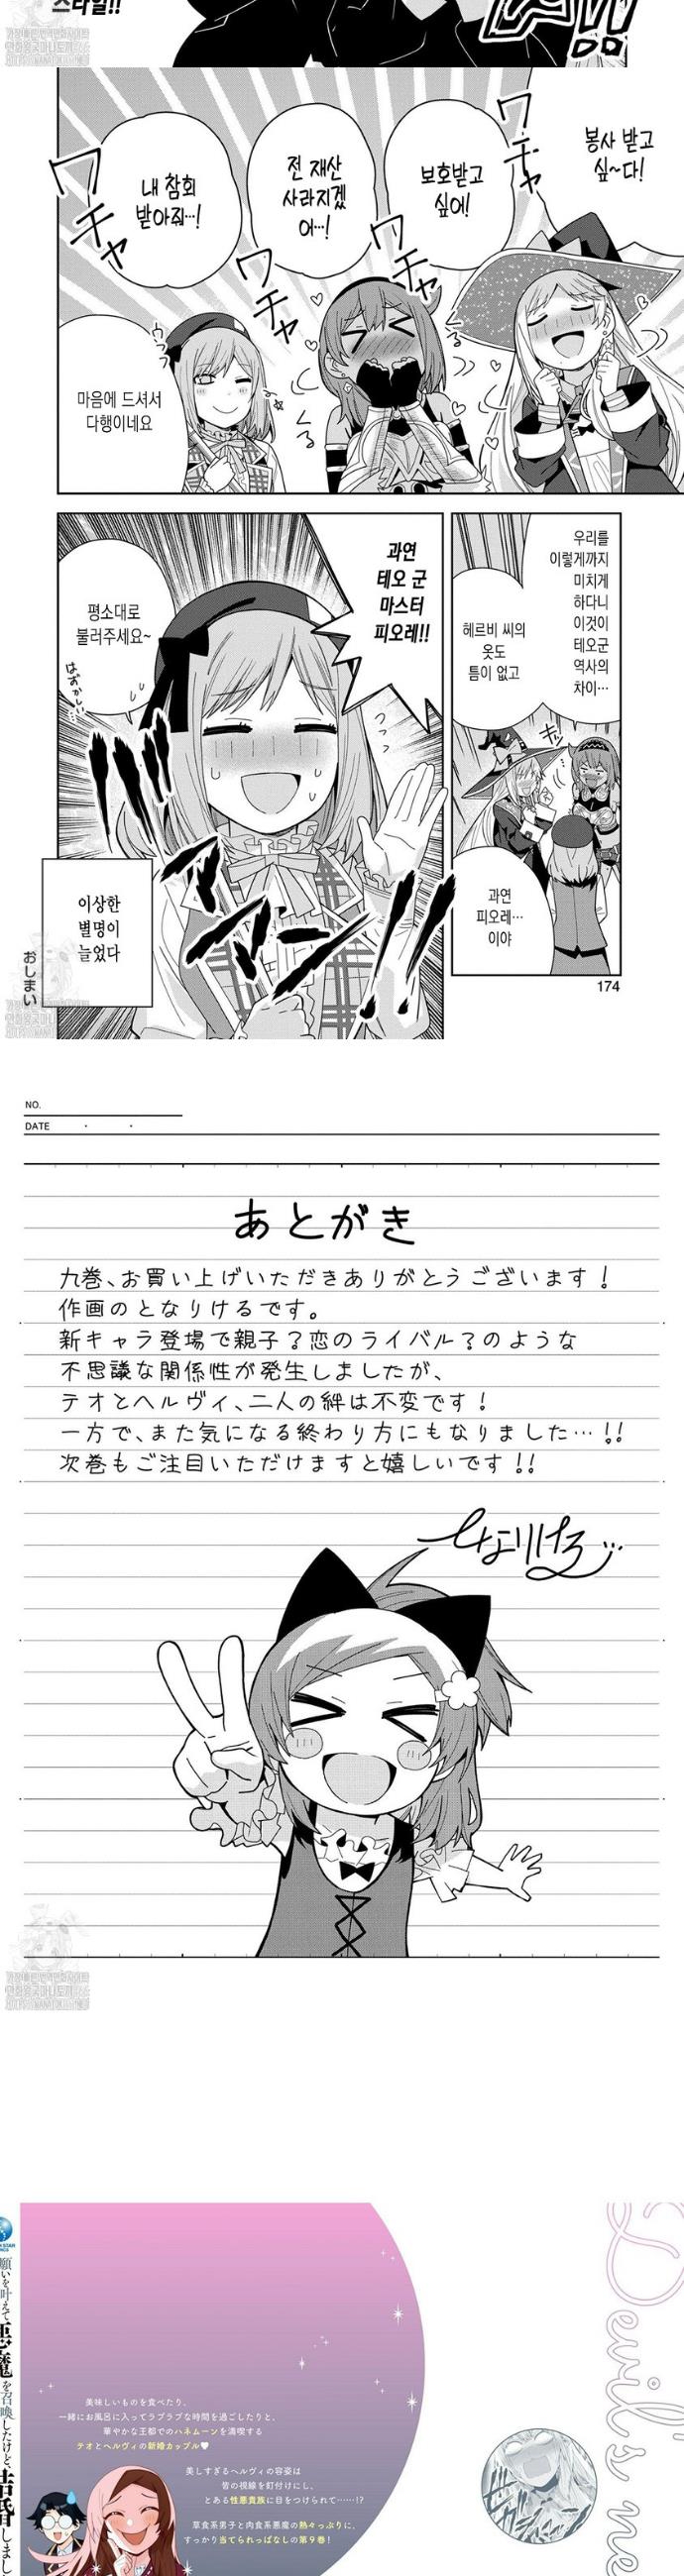 스타일!!
봉사 받고
싶~다!
보호받고
싶어!
전 재산
사라지겠
어…!
내 참회
받아줘…!
ワチャ
ワチャ
ワチャ
ワチャ
마음에 드셔서
다행이네요
우리를
이렇게까지
미치게
하다니
이것이
테오군
역사의
차이…
헤르비 씨의
옷도
틈이 없고
과연
피오레…
이야
과연
테오 군
마스터
피오레!!
평소대로
불러주세요~
はずかしい…
이상한
별명이
늘었다
おしまい
174
NO.
DATE
あとがき
九巻、お買い上げいただきありがとうございます!
作画のとなりけるです。
新キャラ登場で親子?恋のライバル?のような
不思議な関係性が発生しましたが、
テオとヘルヴィ、二人の絆は不変です!
一方で、また気になる終わり方にもなりました…!!
次巻もご注目いただけますと嬉しいです!!
となりける
Devil's ne
願いを叶えて
悪魔を召喚したけど、
結婚しまし
美味しいものを食べたり、
一緒にお風呂に入ってラブラブな時間を過ごしたりと、
華やかな王都でのハネムーンを満喫する
テオとヘルヴィの新婚カップル♥
美しすぎるヘルヴィの容姿は
皆の視線を釘付けにし、
とある性悪貴族に目をつけられて……!?
草食系男子と肉食系悪魔の熱々っぷりに、
すっかり当てられっぱなしの第9巻!